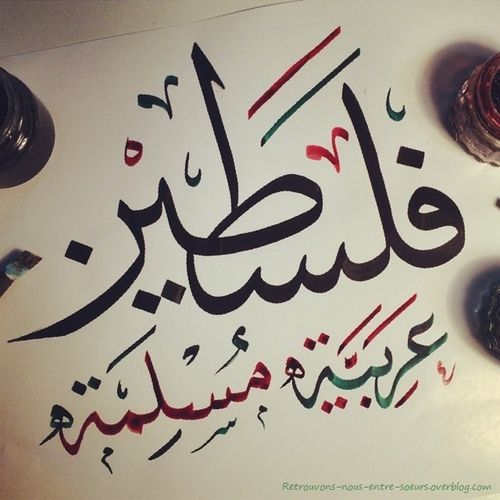 فلسطين
عَرَبِيَّة مُسْلِمَة
Retrouvons-nous-entre-soeurs.overblog.com